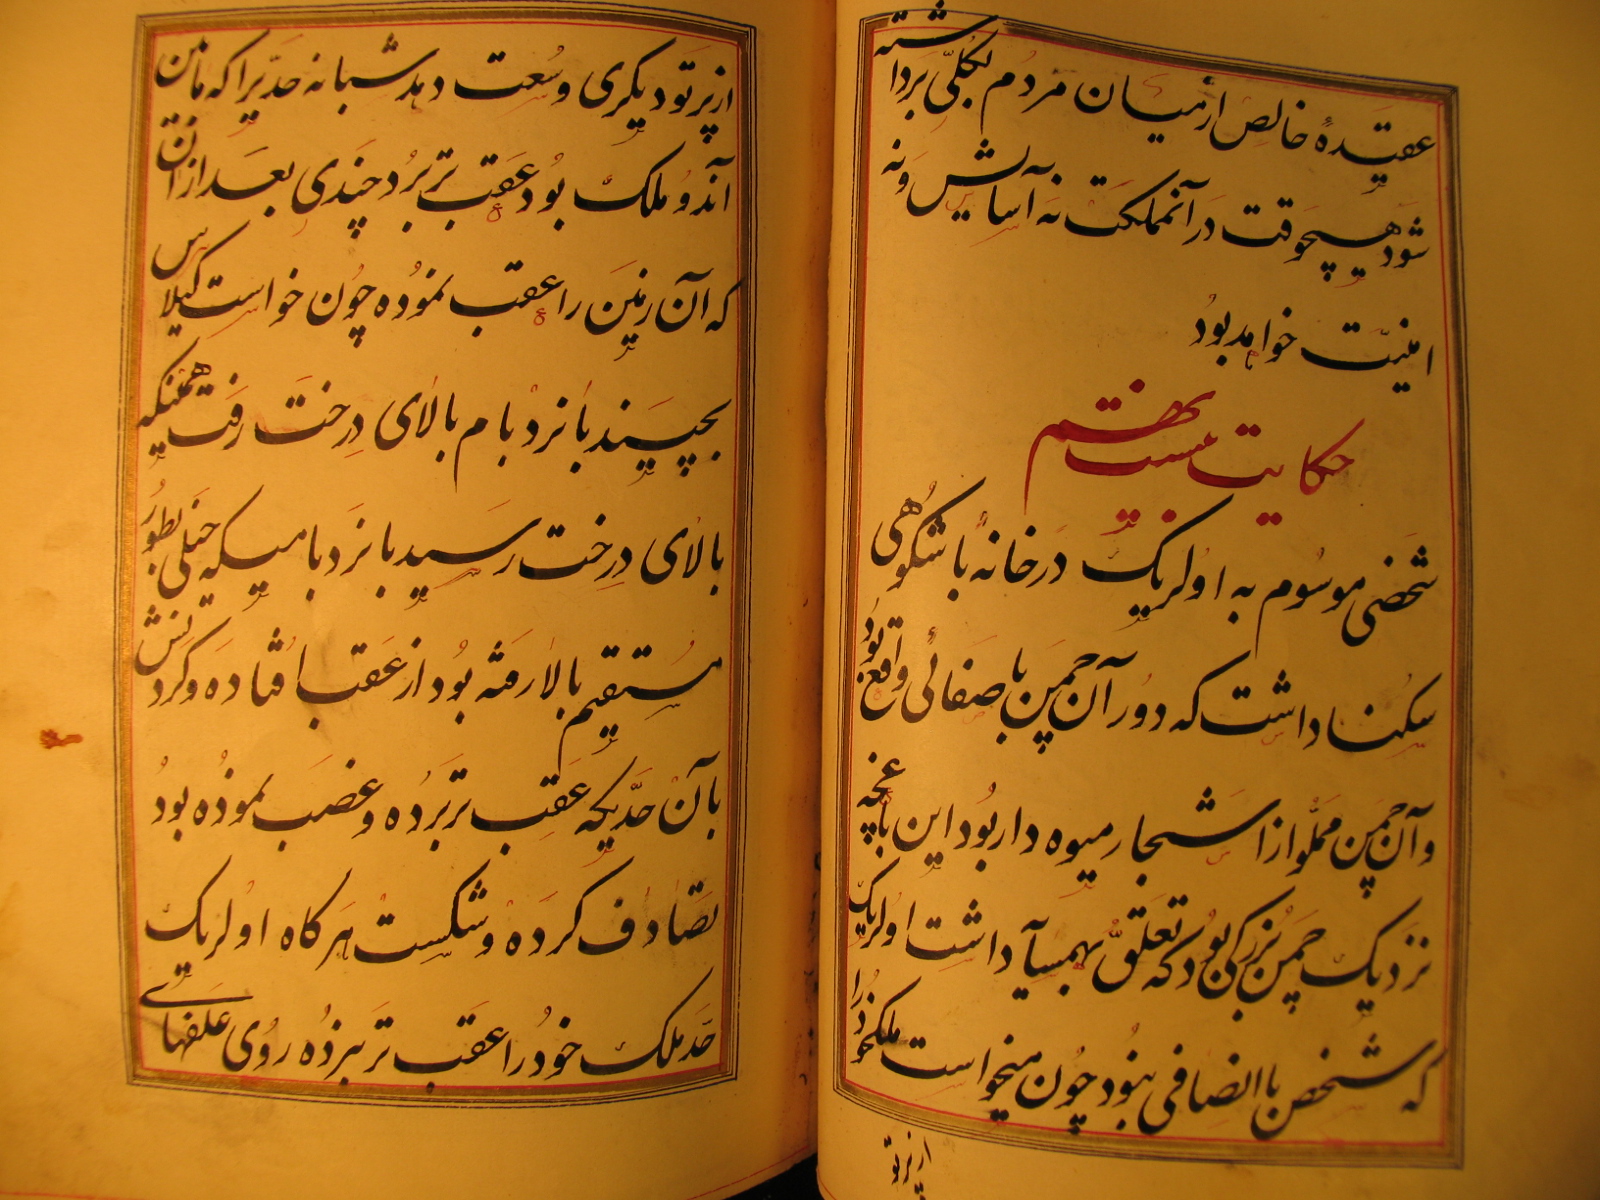 عقیدهٔ خالص از میان مردم بکلّی برداشته
شود هیچوقت در آنمملکت نه آسایش و نه
امنیّت خواهد بود
حکایت بیست هفتم
شخصی موسوم به اولریک در خانهٔ با شکوهی
سکنا داشت که دور آن چمن با صفائی واقع بود
و آن چمن مملو از اشجار میوه دار بود این باغچه
نزدیک چمن بزرکی بود که تعلّق بهمسایه داشت اولریک
که شخص با انصافی نبود چون میخواست ملک خود را
از پرتو
از پرتو دیکری وسعت دهد شبانه حدّیرا که مابین
آندو ملک بود عقب تر برد چندی بعد از آن
که آن زمین را عقب نموده چون خواست کیلاس
بچیند با نردبام بالای درخت رفت همینکه
بالای درخت رسید با نردبامیکه خیلی بطور
مستقیم بالا رفته بود از عقب افتاده و کردنش
بآن حدّیکه عقب تر برده و غصب نموده بود
تصادف کرده و شکست هرکاه اولریک
حد ملک خود را عقب تر نبرده روی علفهای